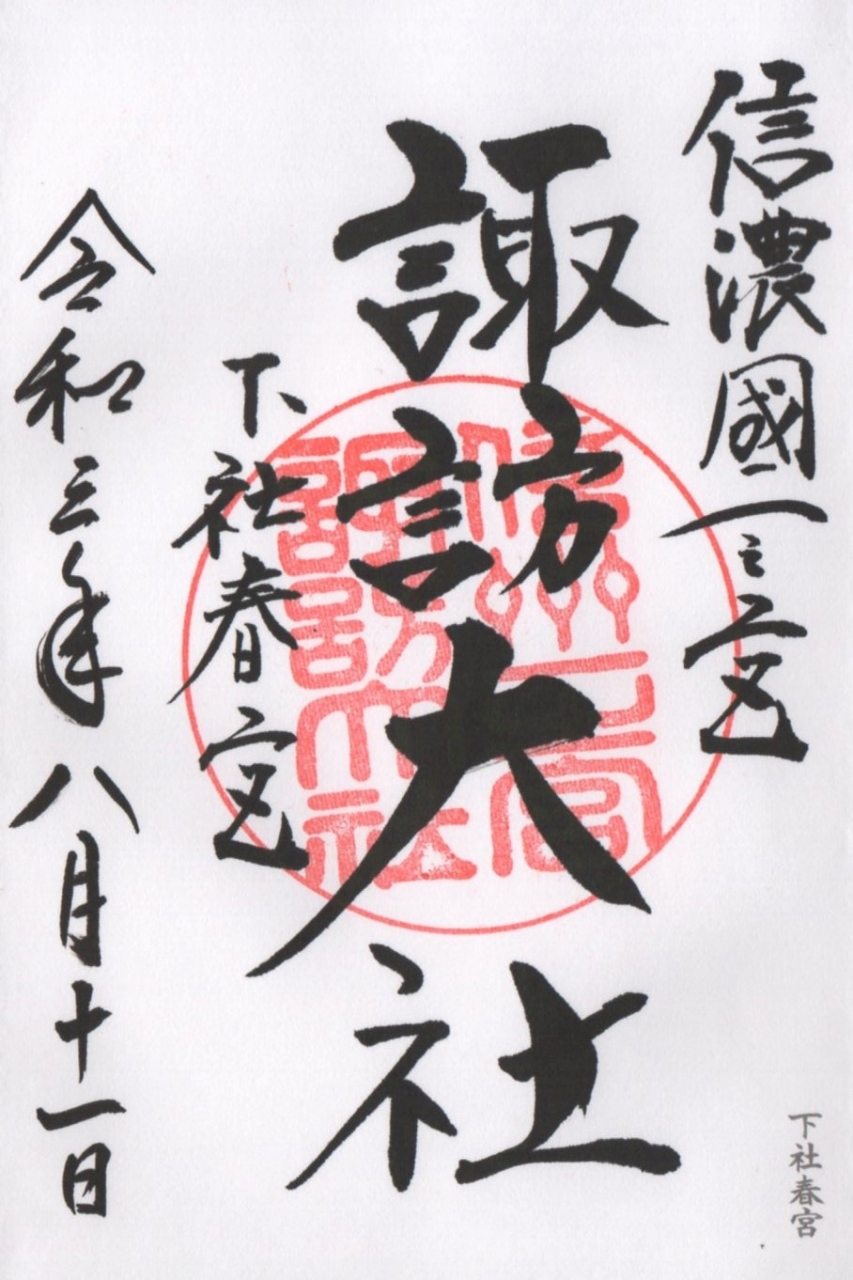 信濃國一之宮
諏訪大社
下社春宮
令和三年八月十一日
信州一宮
諏訪大社
下社春宮